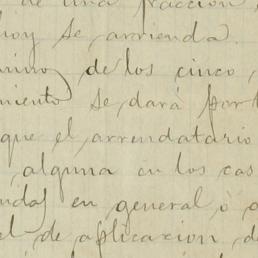 de una fraccion
hoy se arrienda.
de los cinco,
miento se dará por
que el arrendatario
, alguna en los cas
en general ó a
el de aplicacion, de